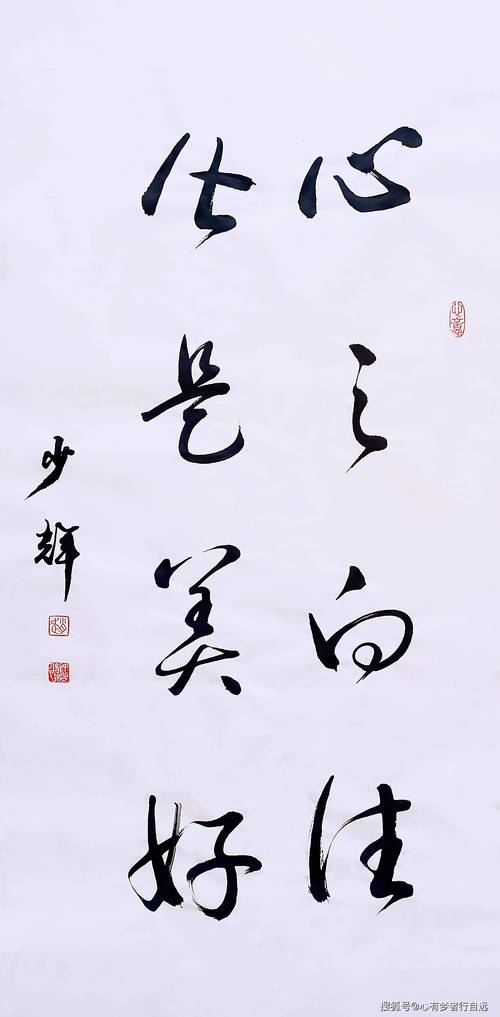 心之向往
是美好
少辉
搜狐号@心有梦者行自远